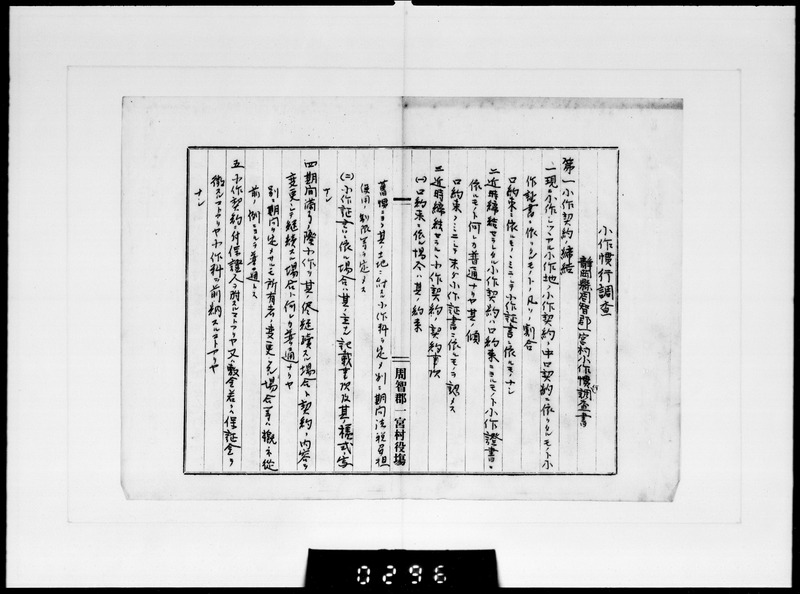 小作慣行調査
静岡縣周智郡一宮村小作慣行調査書
第一 小作契約ノ締結
一 現ニ小作シツヽアル小作地ノ小作契約ノ中口契約ニ依リタルモノト小
作証書ニ依リタルモノトノ凡ソノ割合
口約束ニ依ルモノノミニシテ小作証書ニ依ルモノナシ
二 近時締結セラレタル小作契約ハ口約束ニヨルモノト小作證書ニ
依ルモノト何レカ普通ナリヤ其ノ傾
口約束ノミニシテ未ダ小作証書ニ依ルモノヲ認メス
三 近時締結セラルヽ小作契約ノ契約事項
(一) 口約束ニ依ル場合ハ其ノ約束
舊慣ニヨリ其ノ土地ニ対スル小作料ヲ定メ別ニ期間法税負担
使用ノ制限等ヲ定メス
(二) 小作証書ニ依ル場合ハ其ノ主ナル記載事項及其ノ様式ノ寫
ナシ
四 期間満了ノ際小作ヲ其ノ侭継續スル場合ト契約ノ内容ヲ
変更シテ継続スル場合ト何レカ普通ナリヤ
別ニ期間ヲ定メサルモ所有者ノ変更シタル場合等ハ概ネ従
前ノ例ニヨルヲ普通トス
五 小作契約ニ付保證人ヲ附スルコトアリヤ又敷金若クハ保証金ヲ
徴スルコトアリヤ小作料ヲ前納スルコトアリヤ
ナシ
周智郡一宮村役場
0296